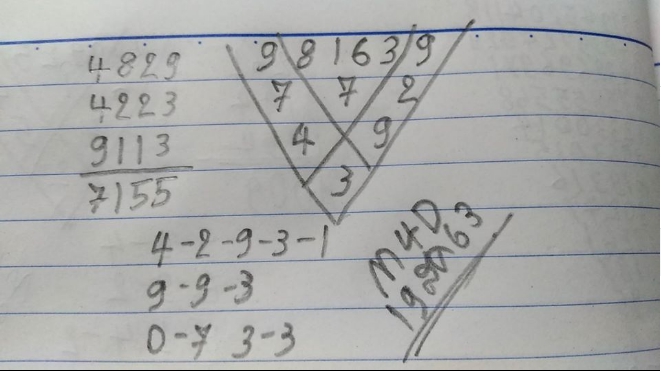 4829
4223
9113
7155
9 8163 9
7 7 2
4 9
3
4-2-9-3-1
9-9-3
0-7 3-3